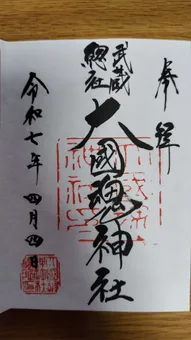 奉拝
武蔵
總社
大國魂神社
令和七年四月四日